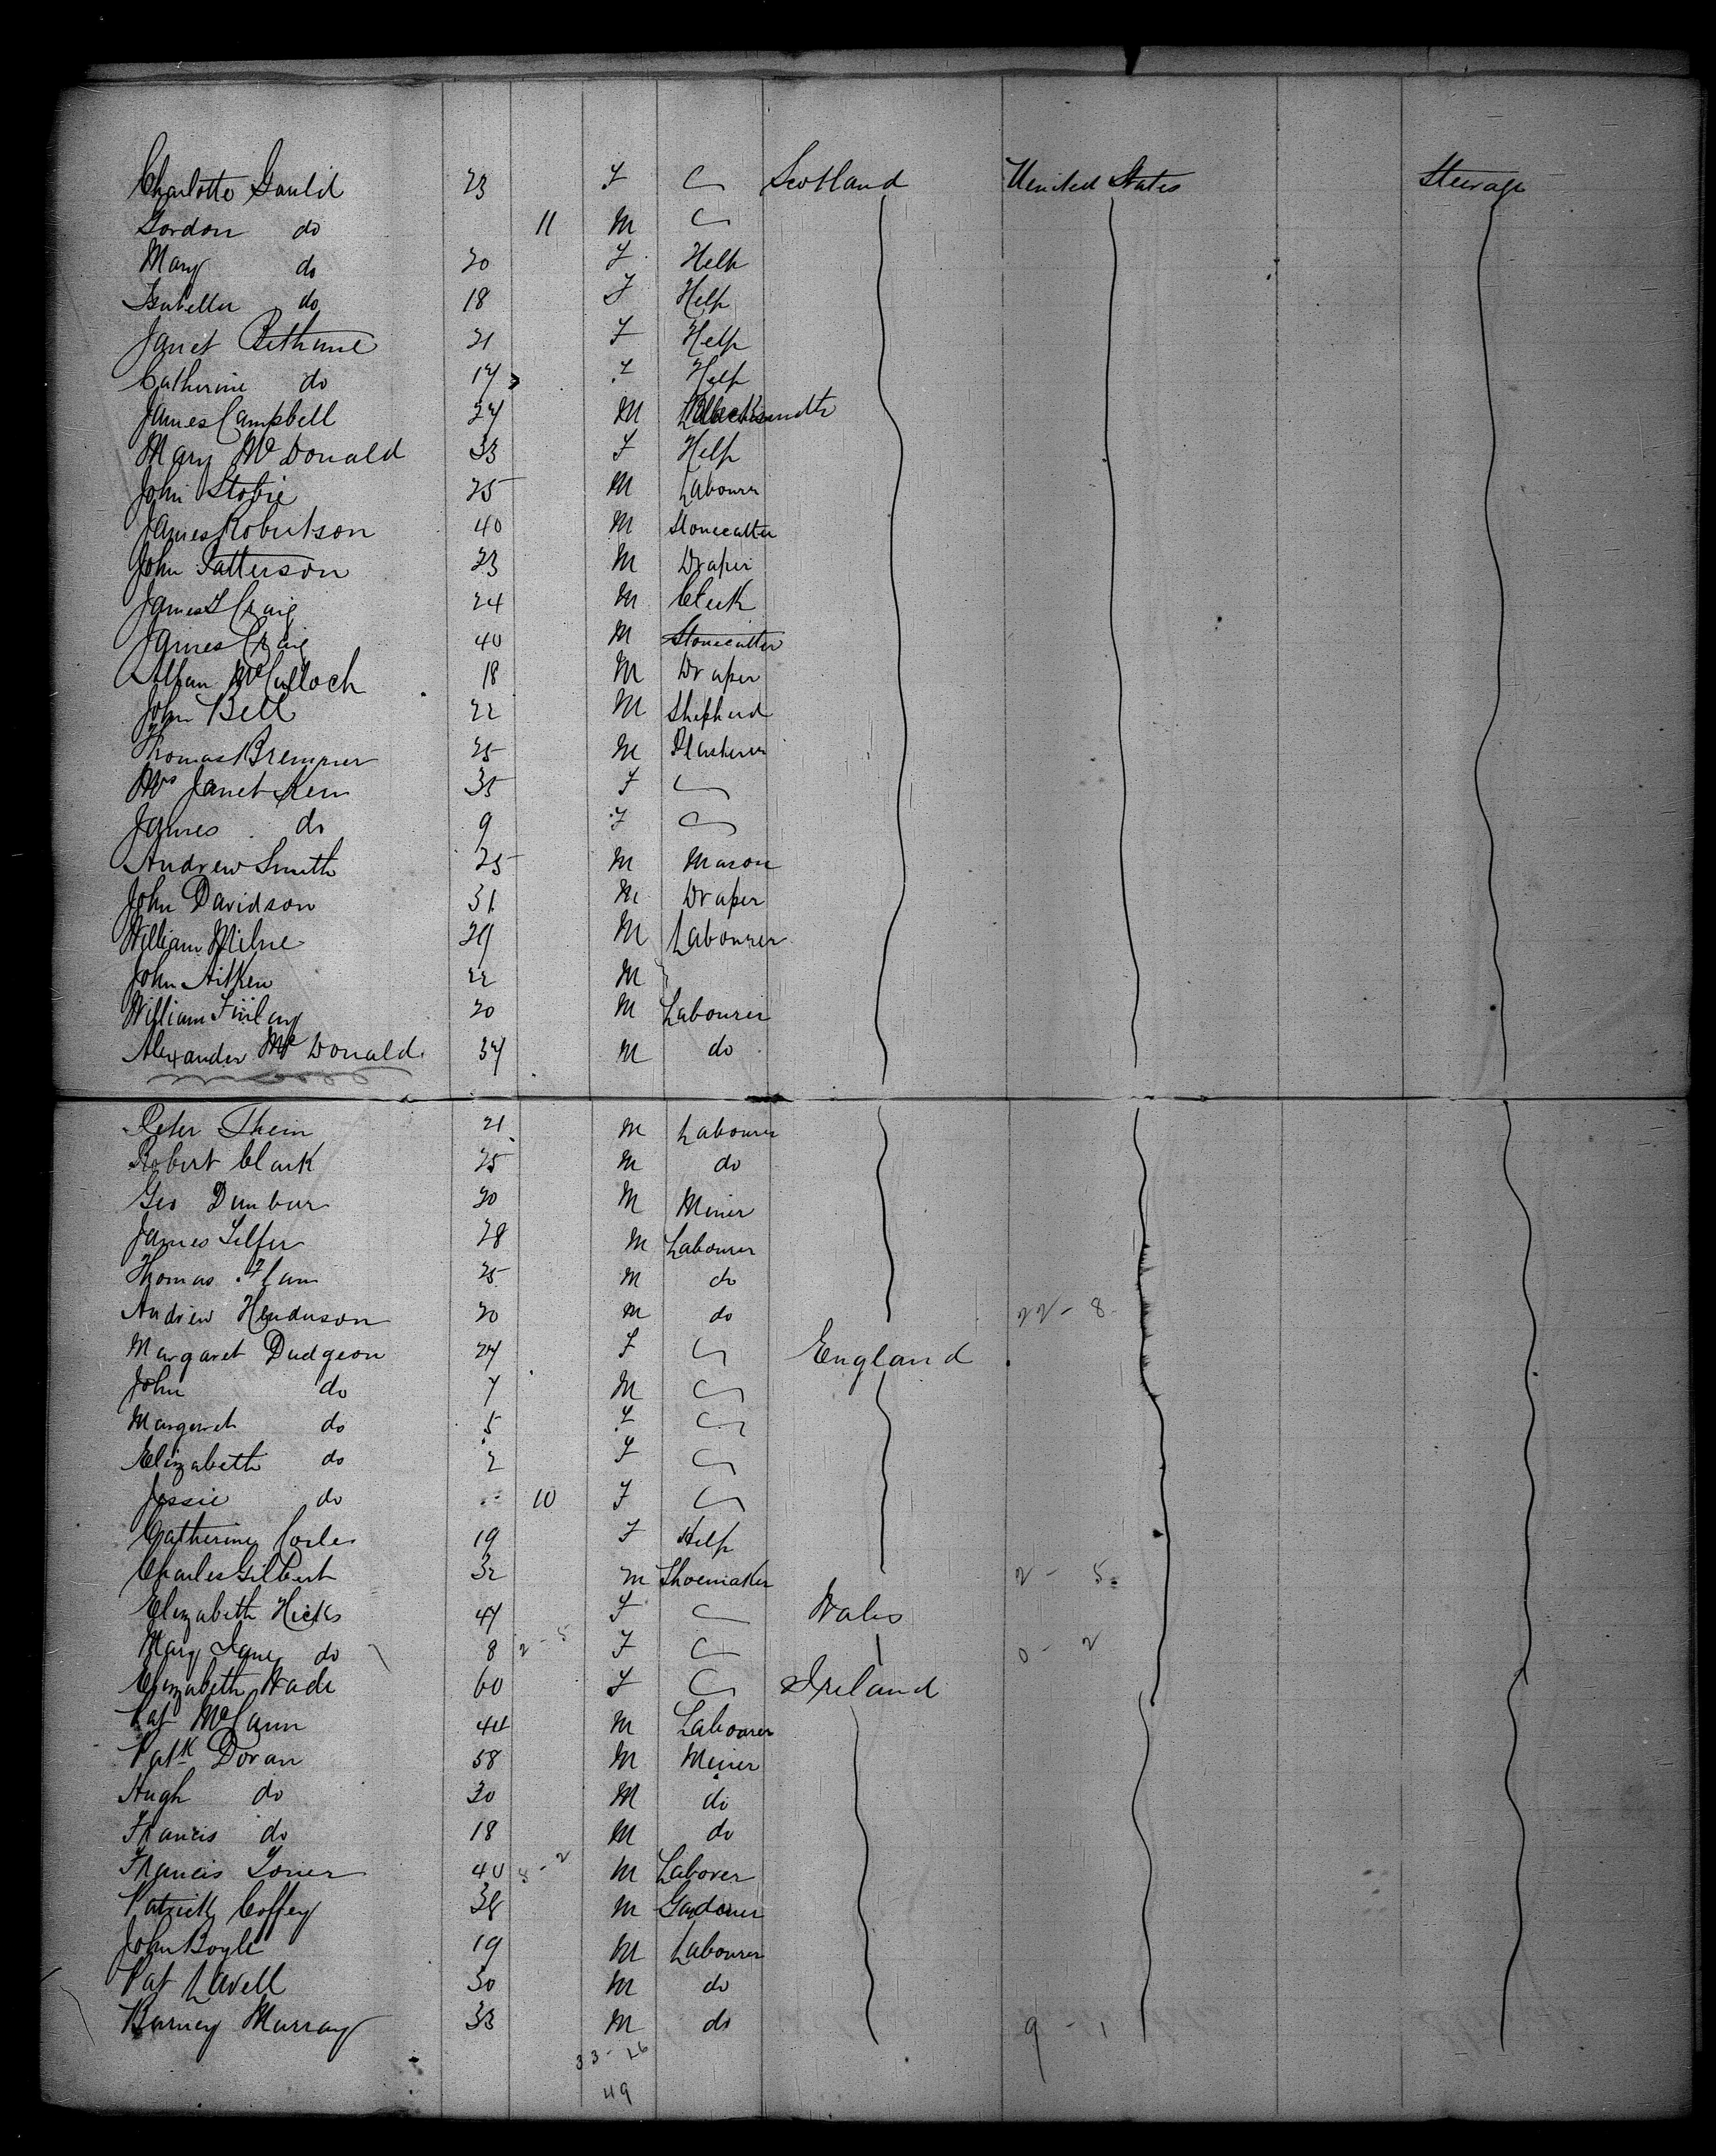 Charlotte Gauld 23 F Scotland United States Steerage
Gordon do 11 M
Mary do 20 F Help
Isabella do 18 F Help
Janet Bethune 21 F Help
Catherine do 17 F Help
James Campbell 24 M Blacksmith
Mary McDonald 33 F Help
John Stobie 25 M Labourer
James Robertson 40 M Stonecutter
John Patterson 23 M Draper
James Craig 24 M Clerk
James Craig 40 M Stonecutter
McCulloch 18 M Draper
John Bell 22 M Shepherd
Thomas Bremner 25 M Plasterer
Mrs Janet 35 F
James do 9 F
Andrew Smith 25 M Mason
John Davidson 31 M Draper
William Milne 29 M Labourer
John Aitken 22 M
William Finlay 20 M Labourer
Alexander McDonald 34 M do
Peter 21 M Labourer
Robert Clark 25 M do
Geo Dunbar 20 M Miner
James 28 M Labourer
Thomas 25 M do
Andrew Henderson 20 M do 22 - 8
Margaret Dudgeon 27 F England
John do 7 M
Margaret do 5 F
Elizabeth do 2 F
Jessie do 10 F
Catherine 19 F Help
Charles Gilbert 32 M Shoemaker 2 - 5
Elizabeth Hicks 47 F Wales
Mary Jane do 8 2 - 5 F 0 - 2
Elizabeth Wade 60 F Ireland
Pat McCann 44 M Labourer
Patk Doran 58 M Miner
Hugh do 30 M do
Francis do 18 M do
Francis 40 M Laborer
Patrick Coffey 38 M Gardener
John Boyle 19 M Labourer
Pat Lavell 30 M do
Barney Murray 33 M do 9 - 1
33 - 16
49